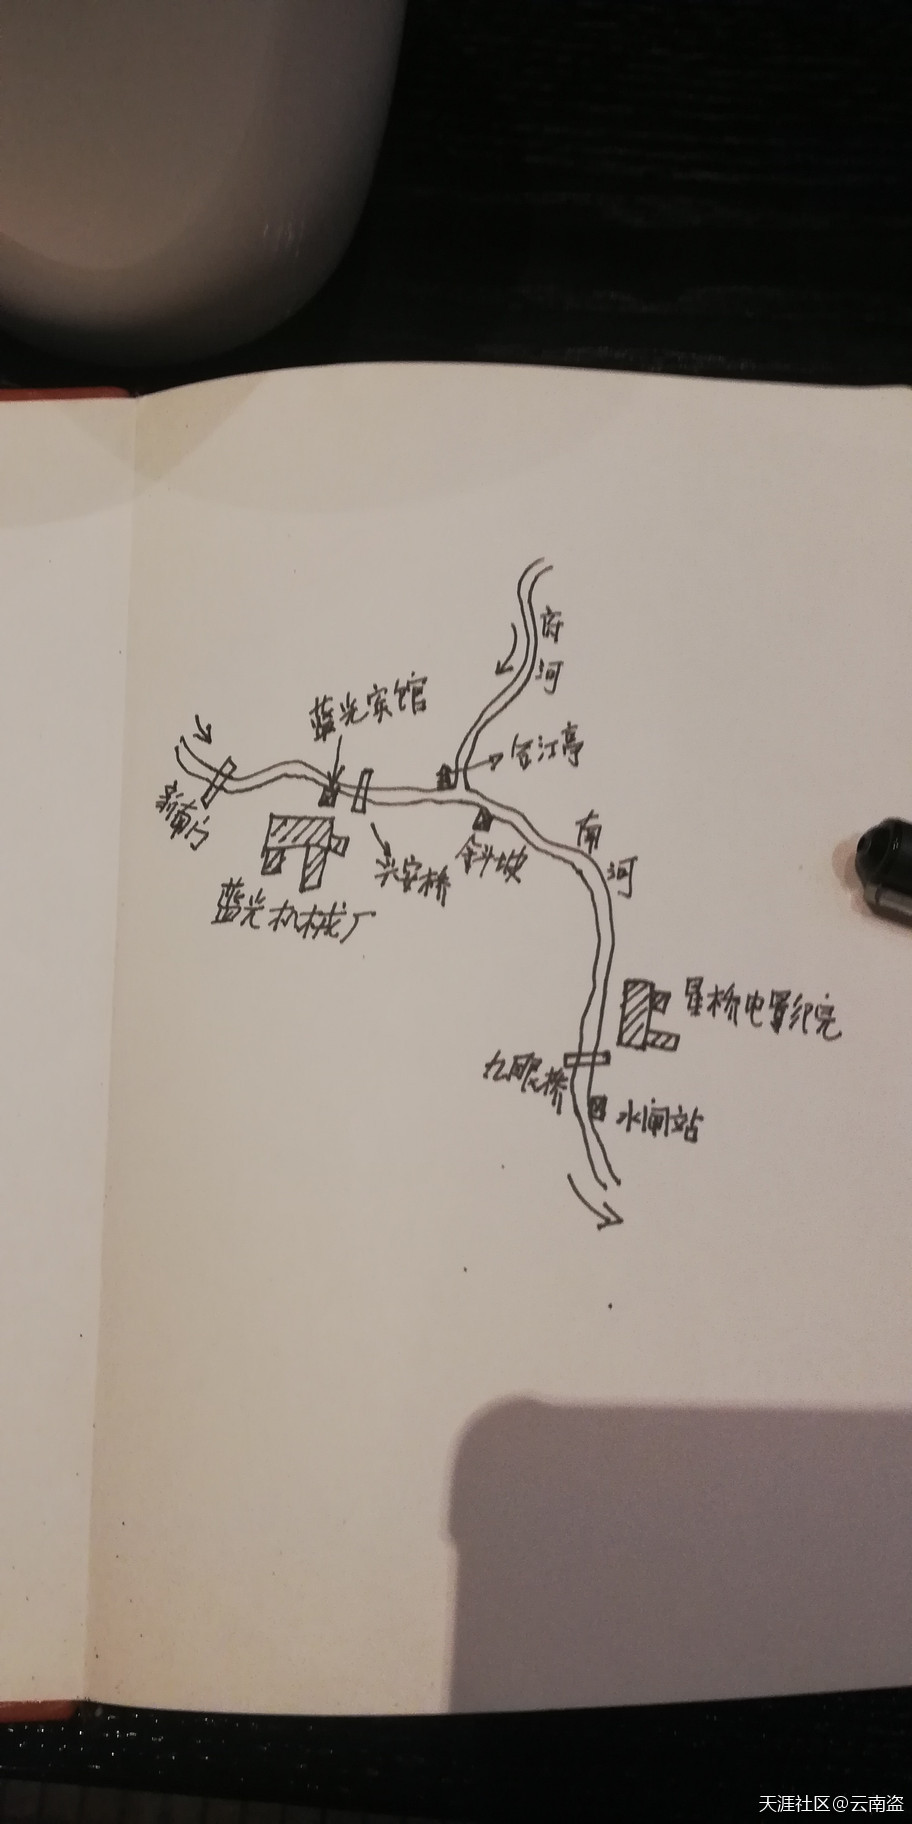 府
河
蓝光宾馆
合江亭
新南门
南
河
兴安桥
斜坡
蓝光机械厂
星桥电影院
九眼桥
水闸站
天涯社区@云南盗